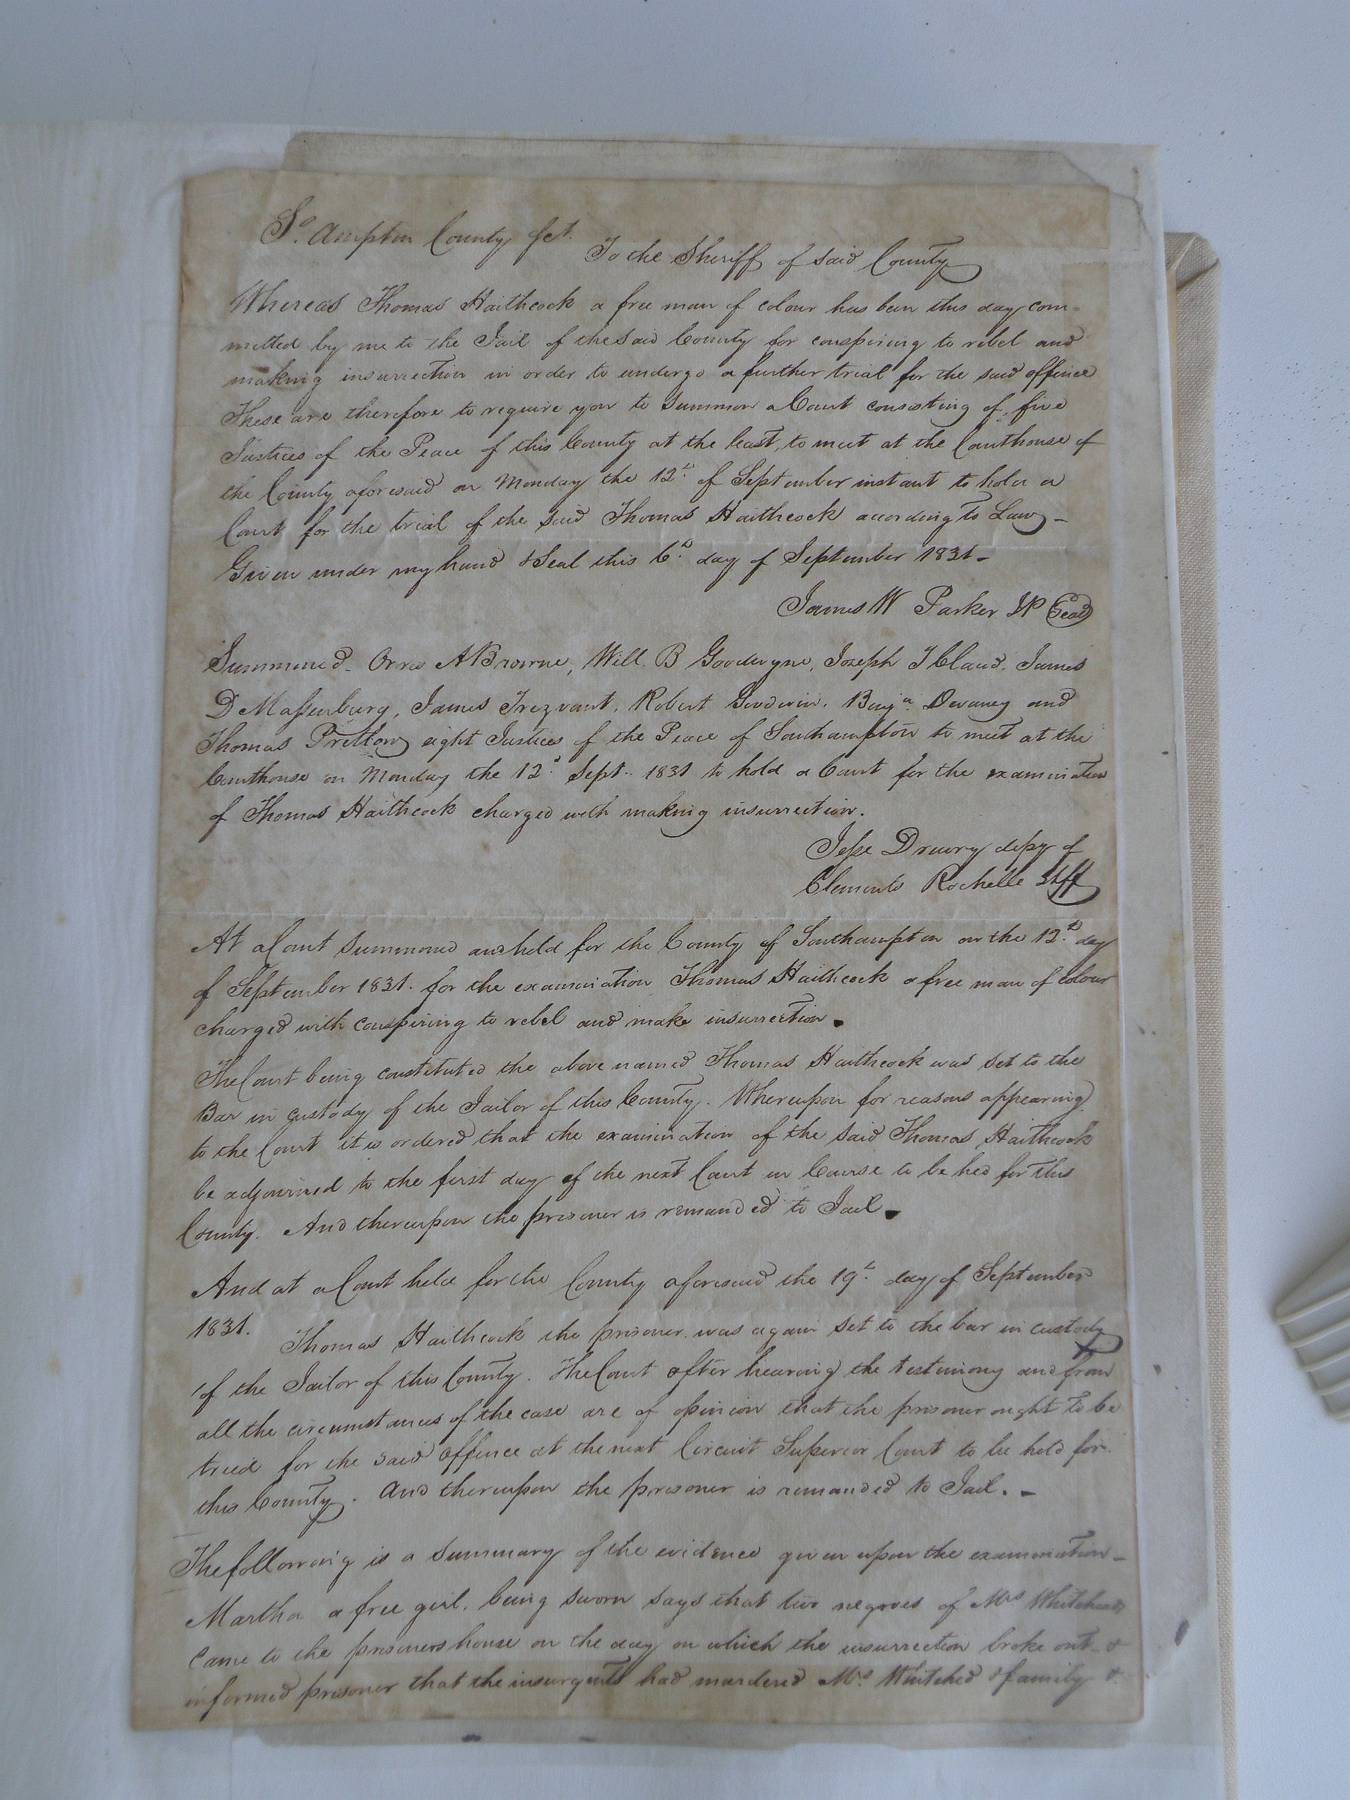 So. Ampton County Sct.
To the Sheriff of said County
Whereas Thomas Haithcock a free man of colour has been this day com-
mitted by me to the Jail of the said County for conspiring to rebel and
making insurrection in order to undergo a further trial for the said offence
These are therefore to require you to summon a Court consisting of five
Justices of the Peace of this County at the least, to meet at the Courthouse of
the County aforesaid on Monday the 12th. of September instant to hold a
Court for the trial of the said Thomas Haithcock according to Law-
Given under my hand & Seal this 6th. day of September 1831-
James W Parker JP Seal
Summoned. Orris A Browne, Will. B Goodwyne, Joseph T Claud. James
D Massenburg, James Trezvant, Robert Goodwin. Benja. Devaney and
Thomas Pretlow eight Justices of the Peace of Southampton to meet at the
Courthouse on Monday the 12th. Sept. 1831 to hold a Court for the examination
of Thomas Haithcock charged with making insurrection.
Jesse Drewry depy of
Clements Rochelle Shff
At a Court summoned and held for the County of Southampton on the 12th. day
of September 1831. for the examination Thomas Haithcock a free man of colour
charged with conspiring to rebel and make insurrection.
The Court being constituted the above named Thomas Haithcock was set to the
Bar in custody of the Jailor of this County. Whereupon for reasons appearing
to the Court it is ordered that the examination of the said Thomas Haithcock
be adjourned to the first day of the next Court in Course to be hed for this
County. And thereupon the prisoner is remanded to Jail.
And at a Court held for the County aforesaid the 19th. day of September
1831.
Thomas Haithcock the prisoner was again set to the bar in custody
of the Jailor of this County. The Court after hearing the testimony and from
all the circumstances of the case are of opinion that the prisoner ought to be
tried for the said offence at the next Circuit Superior Court to be held for
this County. And thereupon the prisoner is remanded to Jail. -
The following is a summary of the evidence given upon the examination-
Martha a free girl. being sworn says that two negroes of Mrs Whiteheads
came to the prisoners house on the day on which the insurrection broke out- &
informed prisoner that the insurgents had murdered Mrs Whitehed & family &